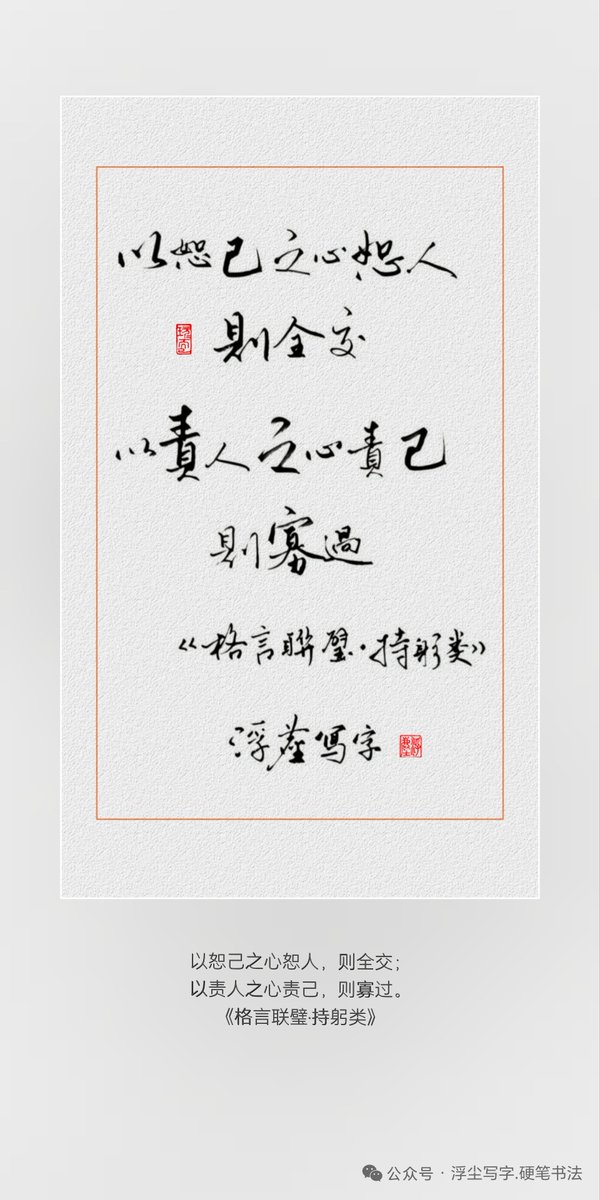 以恕己之心恕人
則全交
以責人之心責己
則寡過
《格言聯璧·持躬类》
浮塵写字
以恕己之心恕人，则全交；
以责人之心责己，则寡过。
《格言联璧·持躬类》
公众号 · 浮尘写字.硬笔书法